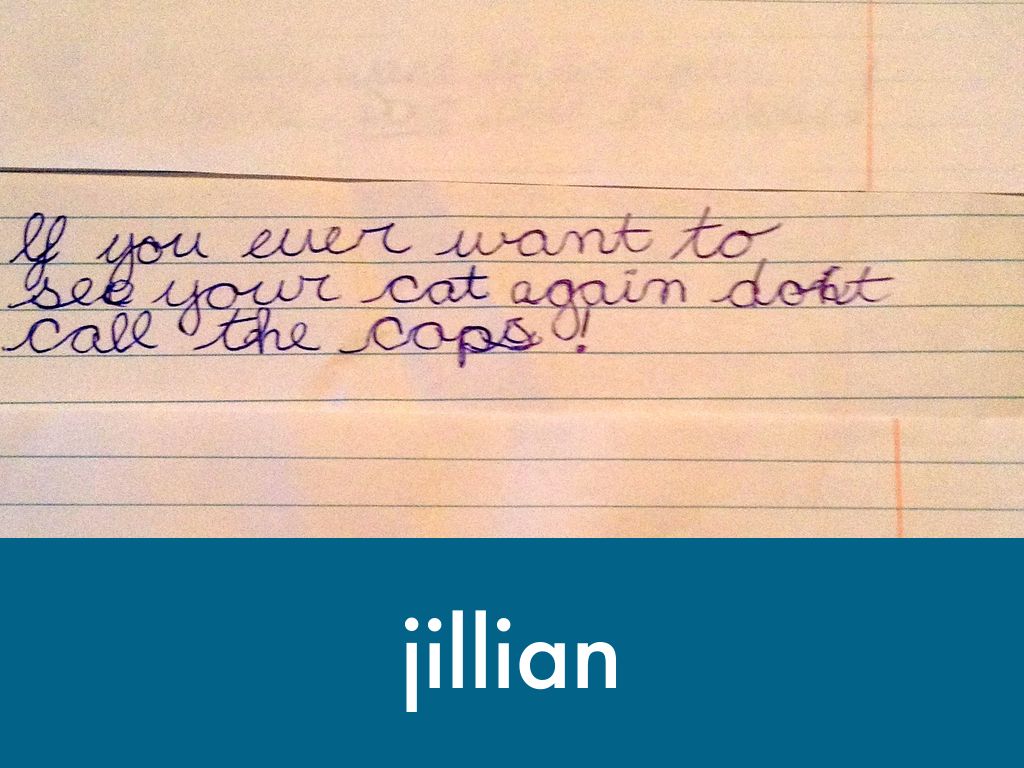 If you ever want to
see your cat again dont
call the cops!
jillian